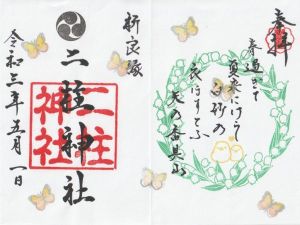 奉拝
春過きて
夏来にけらし
白妙の
衣ほすてふ
天の香具山
祈良縁
二柱神社
二柱
神社
令和三年五月一日